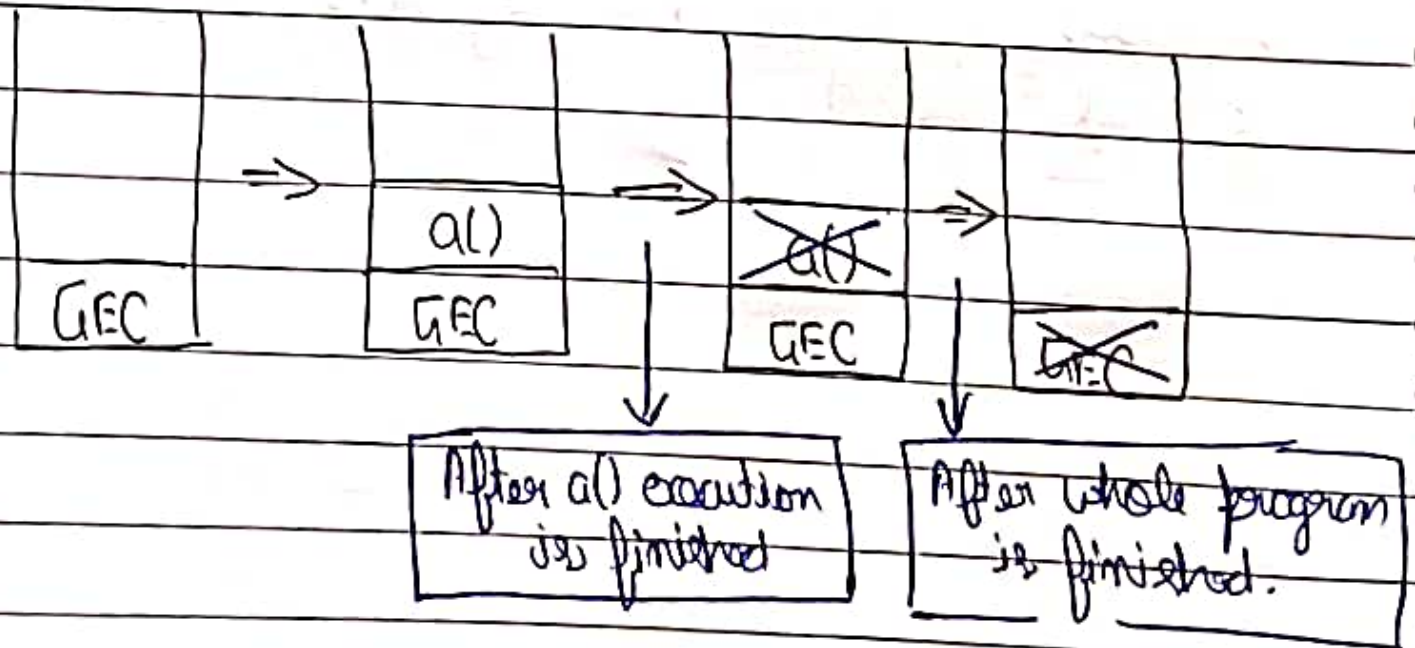 a()
GEC
a()
GEC
GEC
GEC
After a() execution
is finished
After whole program
is finished.